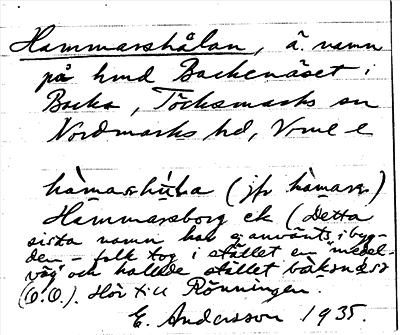 Hammarshålan, ä. namn
på hmd Backenäset i
Backa, Töcksmarks sn
Nordmarks hd, Vrml l
hàmarshúla (jfr hàmars)
Hammarsborg ek (Detta
sista namn har ej använts i byg-
den - folk tog i stället en "medel-
väg" och kallade stället båksnäsä
(O.O.). Hör till Rönningen.
E. Andersson 1935.